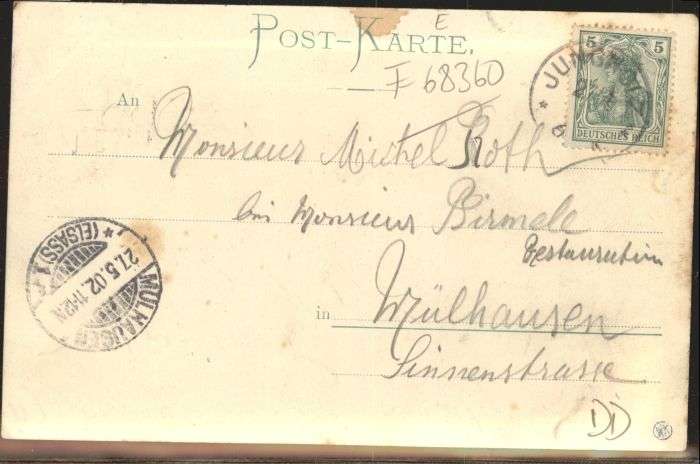 E
POST-KARTE.
F 68360
5 5
DEUTSCHES REICH
An
Monsieur Michel Roth
bei Monsieur Birmele
Restauration
in Mülhausen
Sinnenstrasse
MÜLHAUSEN
(ELSASS) 1
27.5.02. 11-12N
DD